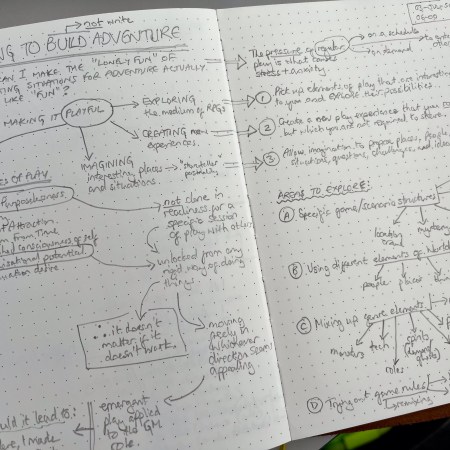 → not write
NG TO BUILD ADVENTURE
CAN I MAKE THE "LONELY FUN" OF
ING SITUATIONS FOR ADVENTURE ACTUALLY
LIKE "FUN"?
MAKING IT PLAYFUL
→ EXPLORING
the medium of RPGs
→ CREATING new
experiences
IMAGINING
interesting places
and situations.
"storyteller"
ES OF PLAY
Purposelessness
Attraction
from Time
consciousness of self
isational potential
uation desire
not done in
readiness for a
specific session
of play with others
unbound from any
rigid way of doing
things!
∴ it doesn't
matter if it
doesn't work.
moving
freely in
whichever
direction seems
appealing
emergent
play applied
to the GM
role.
uld it lead to:
I made
The pressure of regular
play is what causes
stress + anxiety.
on a schedule
on demand
03-JUL-
06:00
① Pick up elements of play that are
to you and EXPLORE their possibilities
② Create a new play experience that you
but which you are not required to share.
③ Allow imagination to propose places, people,
situations, questions, challenges, and ideas
AREAS TO EXPLORE:
Ⓐ Specific game/scenario structures
location
crawl
mystery
Ⓑ Using different elements of
people
places
Ⓒ Mixing up genre elements
monsters
tech
roles
spirits
Ⓓ Trying out game rules